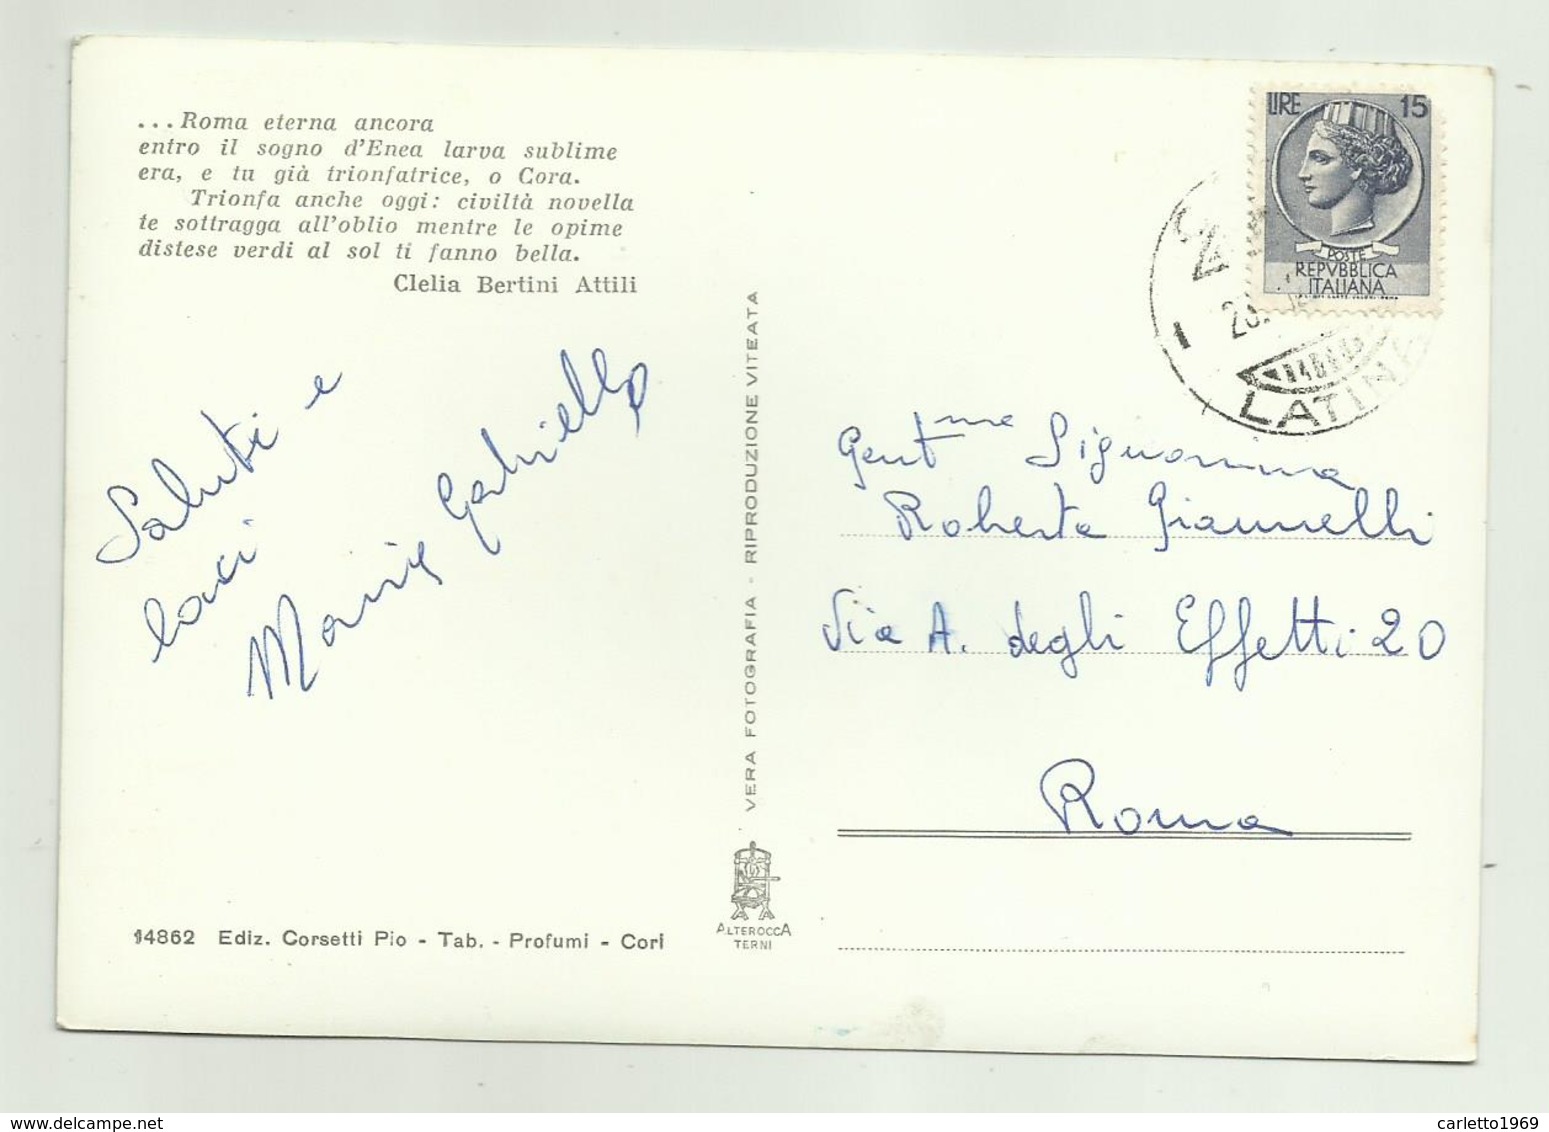 ...Roma eterna ancora
entro il sogno d'Enea larva sublime
era, e tu già trionfatrice, o Cora.
Trionfa anche oggi: civiltà novella
te sottragga all'oblio mentre le opime
distese verdi al sol ti fanno bella.
Clelia Bertini Attili
Saluti e
baci
Maria Gabriella
14862 Ediz. Corsetti Pio - Tab. - Profumi - Cori
VERA FOTOGRAFIA - RIPRODUZIONE VITEATA
ALTEROCCA
TERNI
LIRE 15
POSTE
REPVBBLICA
ITALIANA
1
LATINA
Gentme Signorina
Roberta Giannelli
Via A. degli Effetti 20
Roma
carletto1969